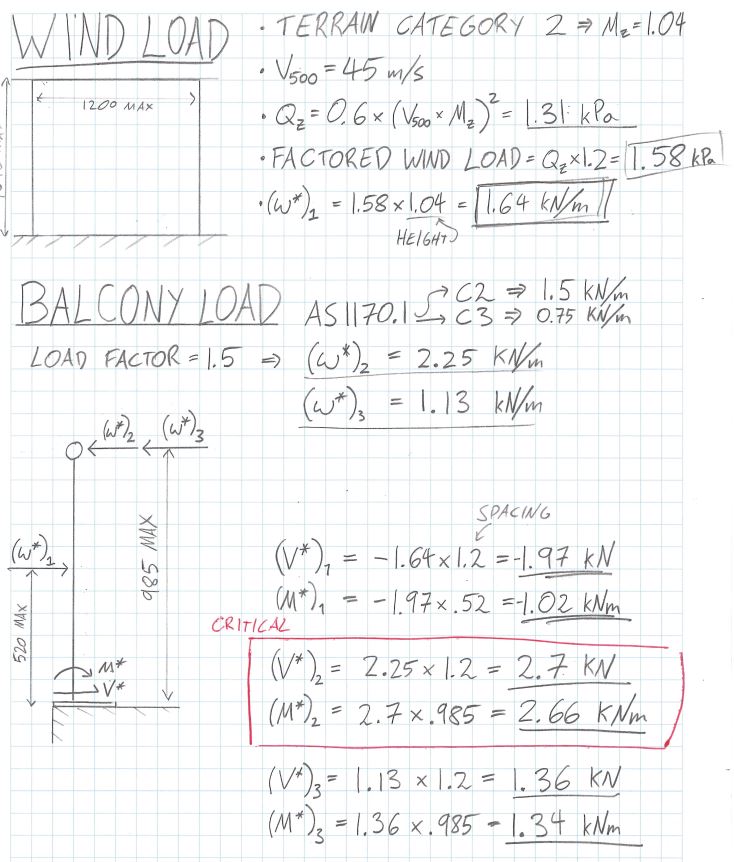 WIND LOAD
• TERRAIN CATEGORY 2 ⇒ M_z = 1.04
1200 MAX
• V_500 = 45 m/s
• Q_z = 0.6 × (V_500 × M_z)² = 1.31 kPa
• FACTORED WIND LOAD = Q_z × 1.2 = 1.58 kPa
• (W*)_1 = 1.58 × 1.04 = 1.64 kN/m
HEIGHT
BALCONY LOAD
AS1170.1 → C2 ⇒ 1.5 KN/m
→ C3 ⇒ 0.75 KN/m
LOAD FACTOR = 1.5 ⇒ (W*)_2 = 2.25 KN/m
(W*)_3 = 1.13 kN/m
(W*)_2 (W*)_3
985 MAX
(W*)_1
520 MAX
M*
V*
SPACING
(V*)_1 = -1.64 × 1.2 = -1.97 kN
(M*)_1 = -1.97 × .52 = -1.02 kNm
CRITICAL
(V*)_2 = 2.25 × 1.2 = 2.7 KN
(M*)_2 = 2.7 × .985 = 2.66 KNm
(V*)_3 = 1.13 × 1.2 = 1.36 KN
(M*)_3 = 1.36 × .985 - 1.34 kNm